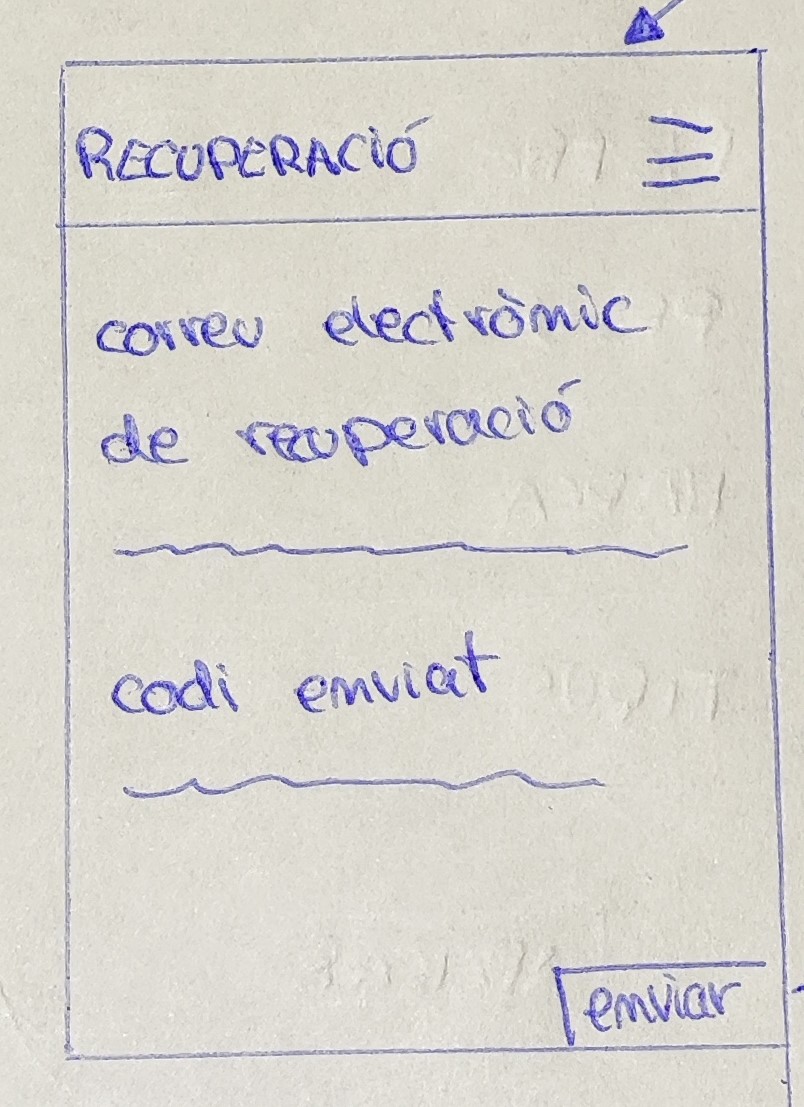 RECUPERACIÓ
correu electrònic
de recuperació
codi enviat
enviar